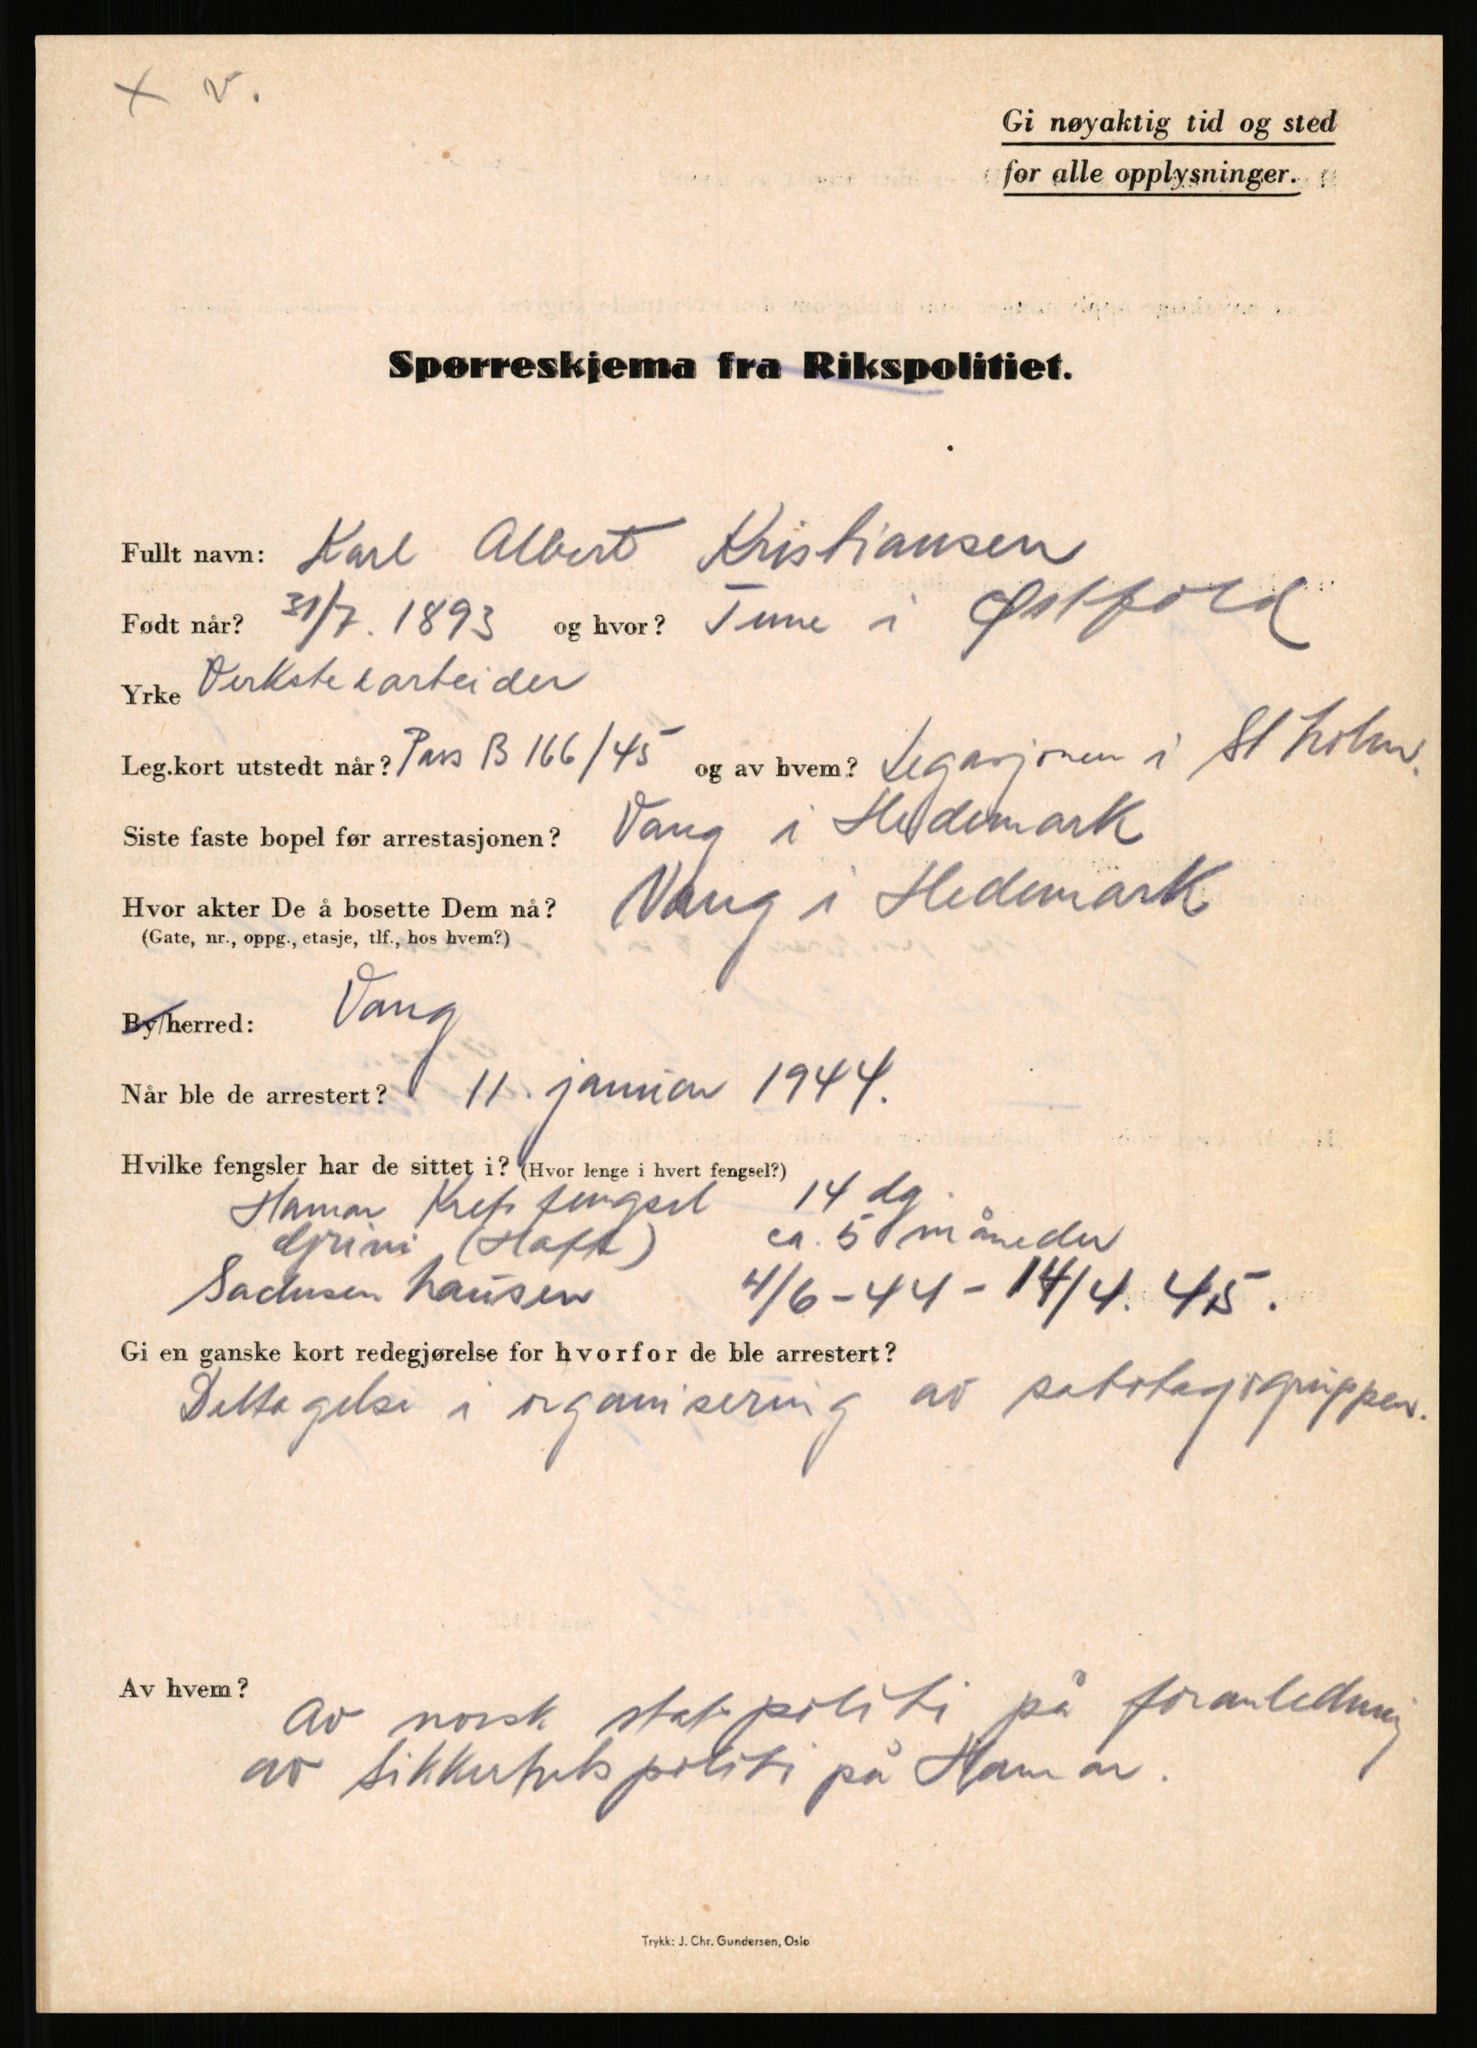 + v.
Gi nøyaktig tid og sted
for alle opplysninger.
Spørreskjema fra Rikspolitiet.
Fullt navn: Karl Albert Kristiansen
Født når? 31/7. 1893 og hvor? Tune i Østfold
Yrke Verkstedarbeider
Leg.kort utstedt når? Pass B 166/45 og av hvem? Legasjonen i Stholm.
Siste faste bopel før arrestasjonen? Vang i Hedemark
Hvor akter De å bosette Dem nå? Vang i Hedemark
(Gate, nr., oppg., etasje, tlf., hos hvem?)
By/herred: Vang
Når ble de arrestert? 11. januar 1944.
Hvilke fengsler har de sittet i? (Hvor lenge i hvert fengsel?)
Hamar Krets fengsel 14 dg.
Grini (Haft) ca. 5 måneder
Sachsenhausen 4/6-44 - 14/4. 45.
Gi en ganske kort redegjørelse for hvorfor de ble arrestert?
Deltagelse i organisering av sabotagegrupper.
Av hvem?
Av norsk statspoliti på foranledning
av Sikkerhetspoliti på Hamar.
Trykk: J. Chr. Gundersen, Oslo